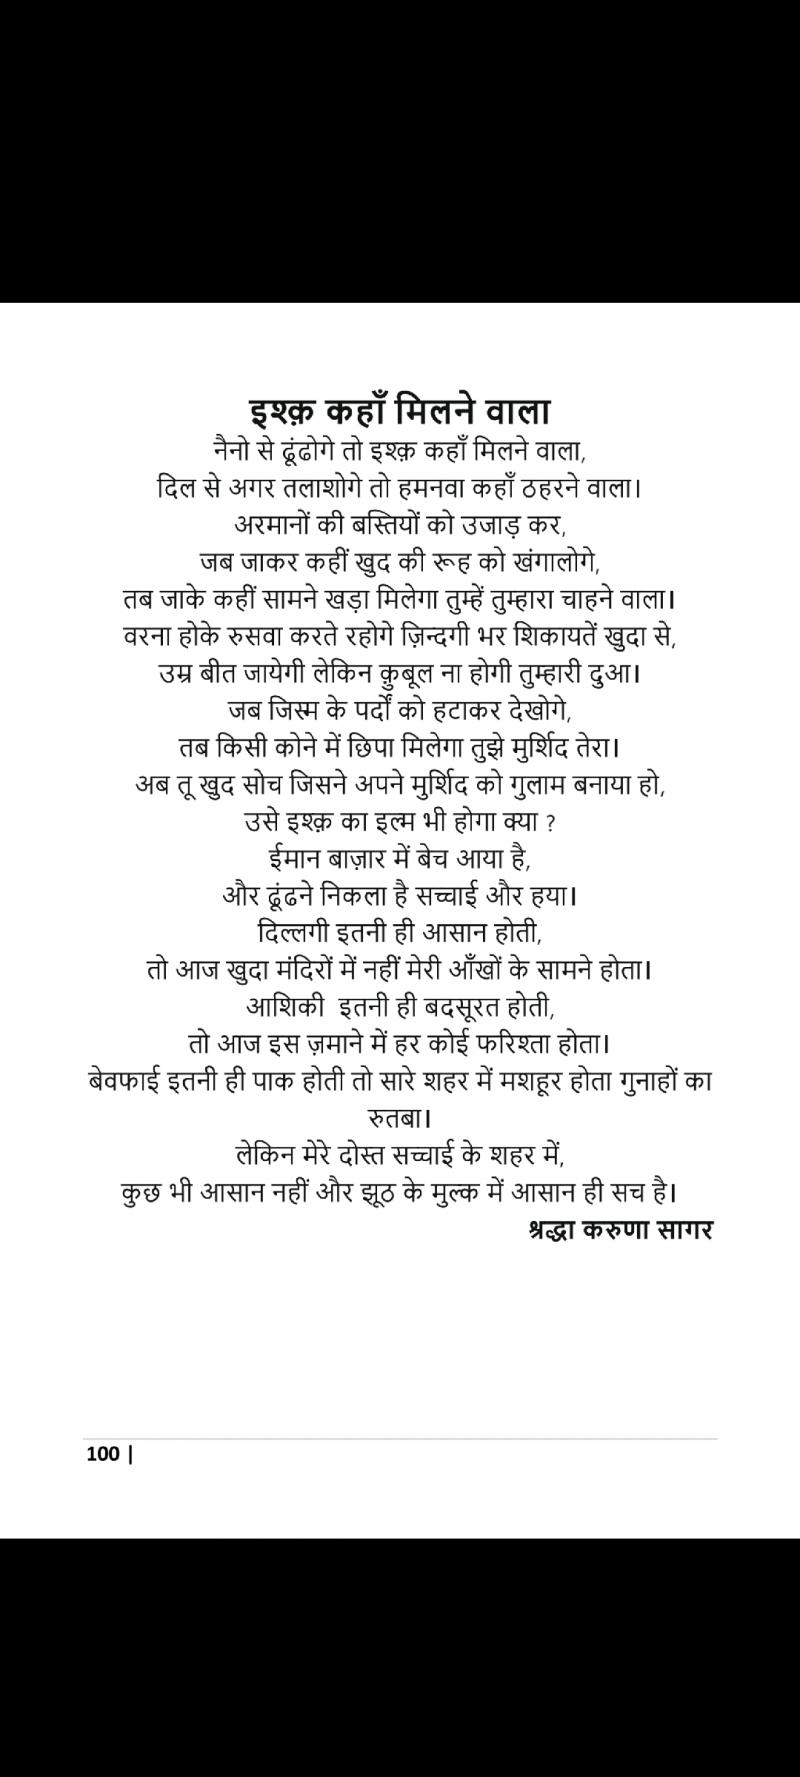 इश्क़ कहाँ मिलने वाला
नैनो से ढूंढोगे तो इश्क़ कहाँ मिलने वाला,
दिल से अगर तलाशोगे तो हमनवा कहाँ ठहरने वाला।
अरमानों की बस्तियों को उजाड़ कर,
जब जाकर कहीं खुद की रूह को खंगालोगे,
तब जाके कहीं सामने खड़ा मिलेगा तुम्हें तुम्हारा चाहने वाला।
वरना होके रुसवा करते रहोगे ज़िन्दगी भर शिकायतें खुदा से,
उम्र बीत जायेगी लेकिन क़ुबूल ना होगी तुम्हारी दुआ।
जब जिस्म के पर्दों को हटाकर देखोगे,
तब किसी कोने में छिपा मिलेगा तुझे मुर्शिद तेरा।
अब तू खुद सोच जिसने अपने मुर्शिद को गुलाम बनाया हो,
उसे इश्क़ का इल्म भी होगा क्या ?
ईमान बाज़ार में बेच आया है,
और ढूंढने निकला है सच्चाई और हया।
दिल्लगी इतनी ही आसान होती,
तो आज खुदा मंदिरों में नहीं मेरी आँखों के सामने होता।
आशिकी  इतनी ही बदसूरत होती,
तो आज इस ज़माने में हर कोई फरिश्ता होता।
बेवफाई इतनी ही पाक होती तो सारे शहर में मशहूर होता गुनाहों का
रुतबा।
लेकिन मेरे दोस्त सच्चाई के शहर में,
कुछ भी आसान नहीं और झूठ के मुल्क में आसान ही सच है।
श्रद्धा करुणा सागर
100 |